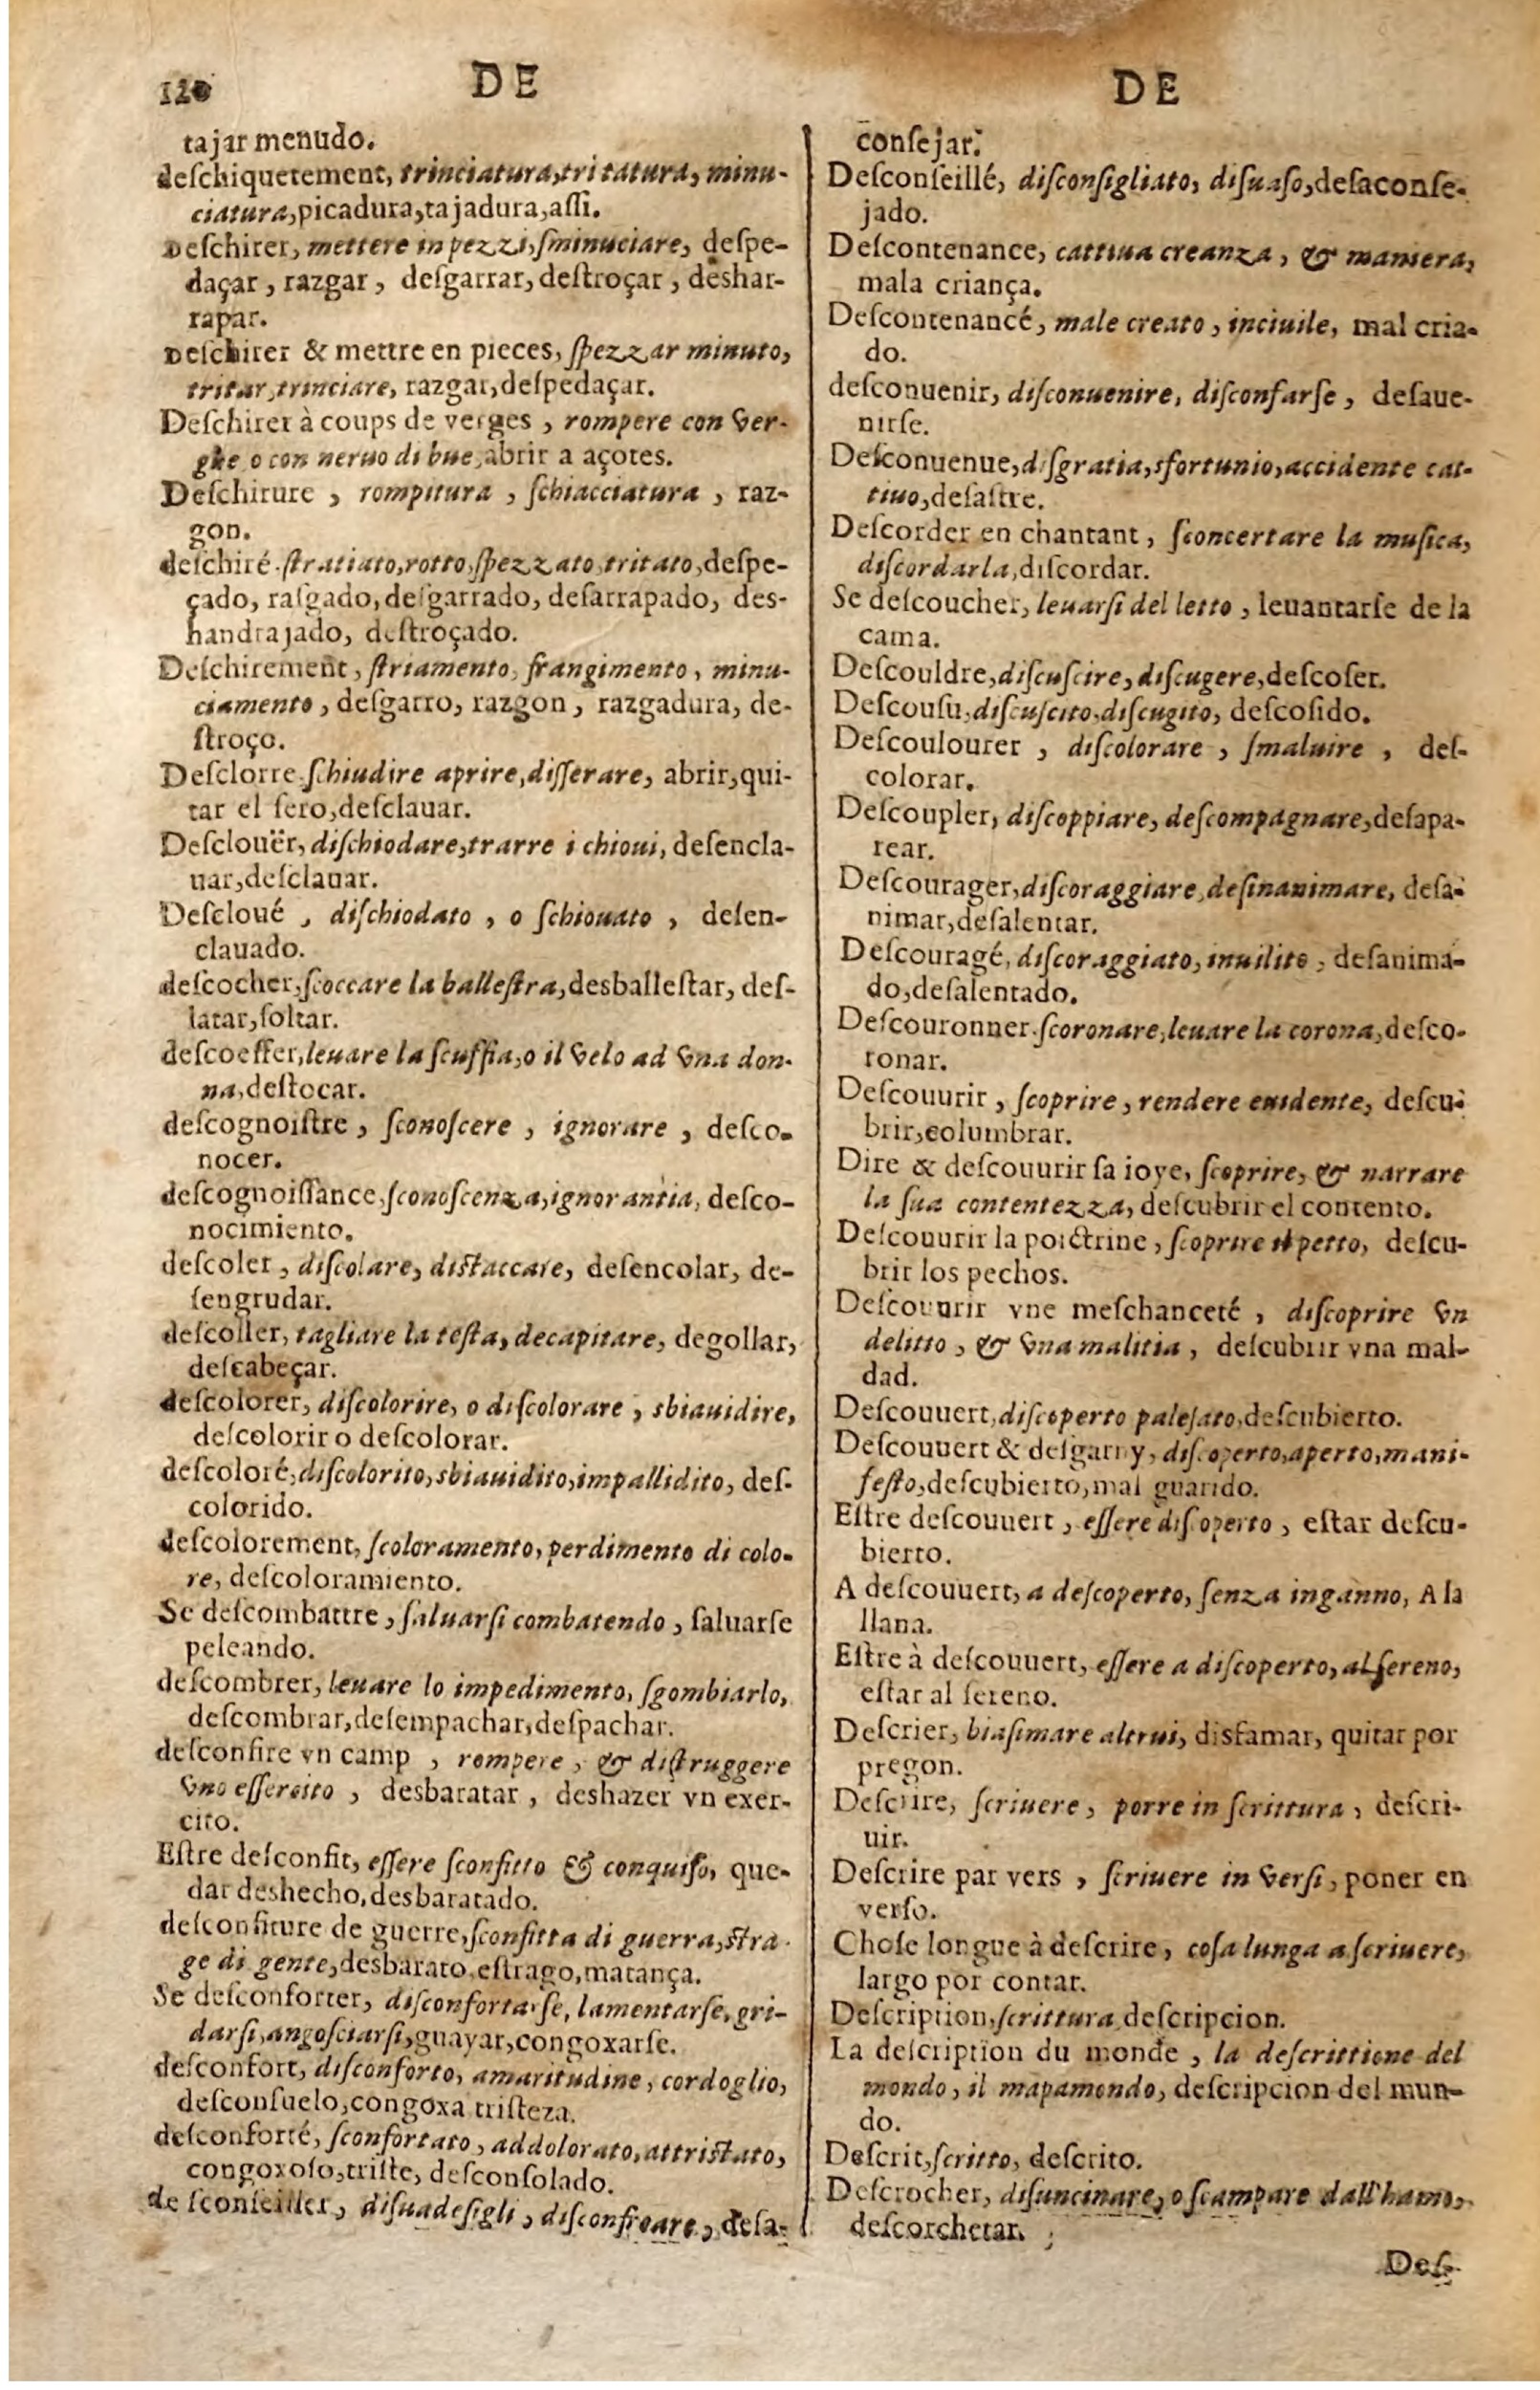 120 DE DE
tajar menudo.
deſchiquetement, trinciatura, tritatura, minu-
ciatura, picadura, tajadura, aſſi.
Deſchirer, mettere in pezzi, ſminuciare, deſpe-
daçar, razgar, deſgarrar, deſtroçar, deshar-
rapar.
Deſchirer & mettre en pieces, ſpezzar minuto,
tritar, trinciare, razgar, deſpedaçar.
Deſchirer à coups de verges, rompere con ver-
ghe o con neruo di bue, abrir a açotes.
Deſchirure, rompitura, ſchiacciatura, raz-
gon.
deſchiré. ſtratiato, rotto, ſpezzato, tritato, deſpe-
çado, raſgado, deſgarrado, deſarrapado, des-
handrajado, deſtroçado.
Deſchirement, ſtriamento, frangimento, minu-
ciamento, deſgarro, razgon, razgadura, de-
ſtroço.
Deſclorre. ſchiudire aprire, diſſerare, abrir, qui-
tar el ſero, deſclauar.
Deſclouër, diſchiodare, trarre i chioui, deſencla-
uar, deſclauar.
Deſcloué, diſchiodato, o ſchiouato, deſen-
clauado.
deſcocher, ſcoccare la balleſtra, desballeſtar, deſ-
latar, ſoltar.
deſcoeffer, leuare la ſcuffia, o il velo ad vna don-
na, deſtocar.
deſcognoiſtre, ſconoſcere, ignorare, deſco-
nocer.
deſcognoiſſance, ſconoſcenza, ignorantia, deſco-
nocimiento.
deſcoler, diſcolare, diſtaccare, deſencolar, de-
ſengrudar.
deſcoller, tagliare la teſta, decapitare, degollar,
deſcabeçar.
deſcolorer, diſcolorire, o diſcolorare, sbiauidire,
deſcolorir o deſcolorar.
deſcoloré, diſcolorito, sbiauidito, impallidito, deſ-
colorido.
deſcolorement, ſcoloramento, perdimento di colo-
re, deſcoloramiento.
Se deſcombattre, ſaluarſi combatendo, ſaluarſe
peleando.
deſcombrer, leuare lo impedimento, ſgombiarlo,
deſcombrar, deſempachar, deſpachar.
deſconfire vn camp, rompere, & diſtruggere
vno eſſercito, desbaratar, deshazer vn exer-
cito.
Eſtre deſconfit, eſſere ſconfitto & conquiſo, que-
dar deshecho, desbaratado.
deſconfiture de guerre, ſconfitta di guerra, ſtra-
ge di gente, desbarato, eſtrago, matança.
Se deſconforter, diſconfortarſe, lamentarſe, gri-
darſi, angoſciarſi, guayar, congoxarſe.
deſconfort, diſconforto, amaritudine, cordoglio,
deſconſuelo, congoxa triſteza.
deſconforté, ſconfortato, addolorato, attriſtato,
congoxoſo, triſte, deſconſolado.
deſconſeiller, diſuadeſigli, deſa-
conſejar.
Deſconſeillé, diſconſigliato, diſuaſo, deſaconſe-
jado.
Deſcontenance, cattiua creanza, & maniera,
mala criança.
Deſcontenancé, male creato, inciuile, mal cria-
do.
deſconuenir, diſconuenire, diſconfarſe, deſaue-
nirſe.
Deſconuenue, diſgratia, sfortunio, accidente cat-
tiuo, deſaſtre.
Deſcorder en chantant, ſconcertare la muſica,
diſcordarla, diſcordar.
Se deſcoucher, leuarſi del letto, leuantarſe de la
cama.
Deſcouldre, diſcuſcire, diſcugere, deſcoſer.
Deſcouſu, diſcuſcito, diſcugito, deſcoſido.
Deſcoulourer, diſcolorare, ſmaluire, deſ-
colorar.
Deſcoupler, diſcoppiare, deſcompagnare, deſapa-
rear.
Deſcourager, diſcoraggiare, deſinanimare, deſa-
nimar, deſalentar.
Deſcouragé, diſcoraggiato, inuilito, deſanima-
do, deſalentado.
Deſcouronner. ſcoronare, leuare la corona, deſco-
ronar.
Deſcouurir, ſcoprire, rendere euidente, deſcu-
brir, columbrar.
Dire & deſcouurir ſa ioye, ſcoprire, & narrare
la ſua contentezza, deſcubrir el contento.
Deſcouurir la poictrine, ſcoprire il petto, deſcu-
brir los pechos.
Deſcouurir vne meſchanceté, diſcoprire vn
delitto, & vna malitia, deſcubrir vna mal-
dad.
Deſcouuert, diſcoperto paleſato, deſcubierto.
Deſcouuert & deſgarny, diſcoperto, aperto, mani-
feſto, deſcubierto, mal guarido.
Eſtre deſcouuert, eſſere diſcoperto, eſtar deſcu-
bierto.
A deſcouuert, a deſcoperto, ſenza inganno, A la
llana.
Eſtre à deſcouuert, eſſere a diſcoperto, al ſereno,
eſtar al ſereno.
Deſcrier, biaſimare altrui, disfamar, quitar por
pregon.
Deſcrire, ſcriuere, porre in ſcrittura, deſcri-
uir.
Deſcrire par vers, ſcriuere in verſi, poner en
verſo.
Choſe longue à deſcrire, coſa lunga a ſcriuere,
largo por contar.
Deſcription, ſcrittura, deſcripcion.
La deſcription du monde, la deſcrittione del
mondo, il mapamondo, deſcripcion del mun-
do.
Deſcrit, ſcritto, deſcrito.
Deſcrocher, diſuncinare, o ſcampare dall'hamo,
deſcorchetar.
Deſ-